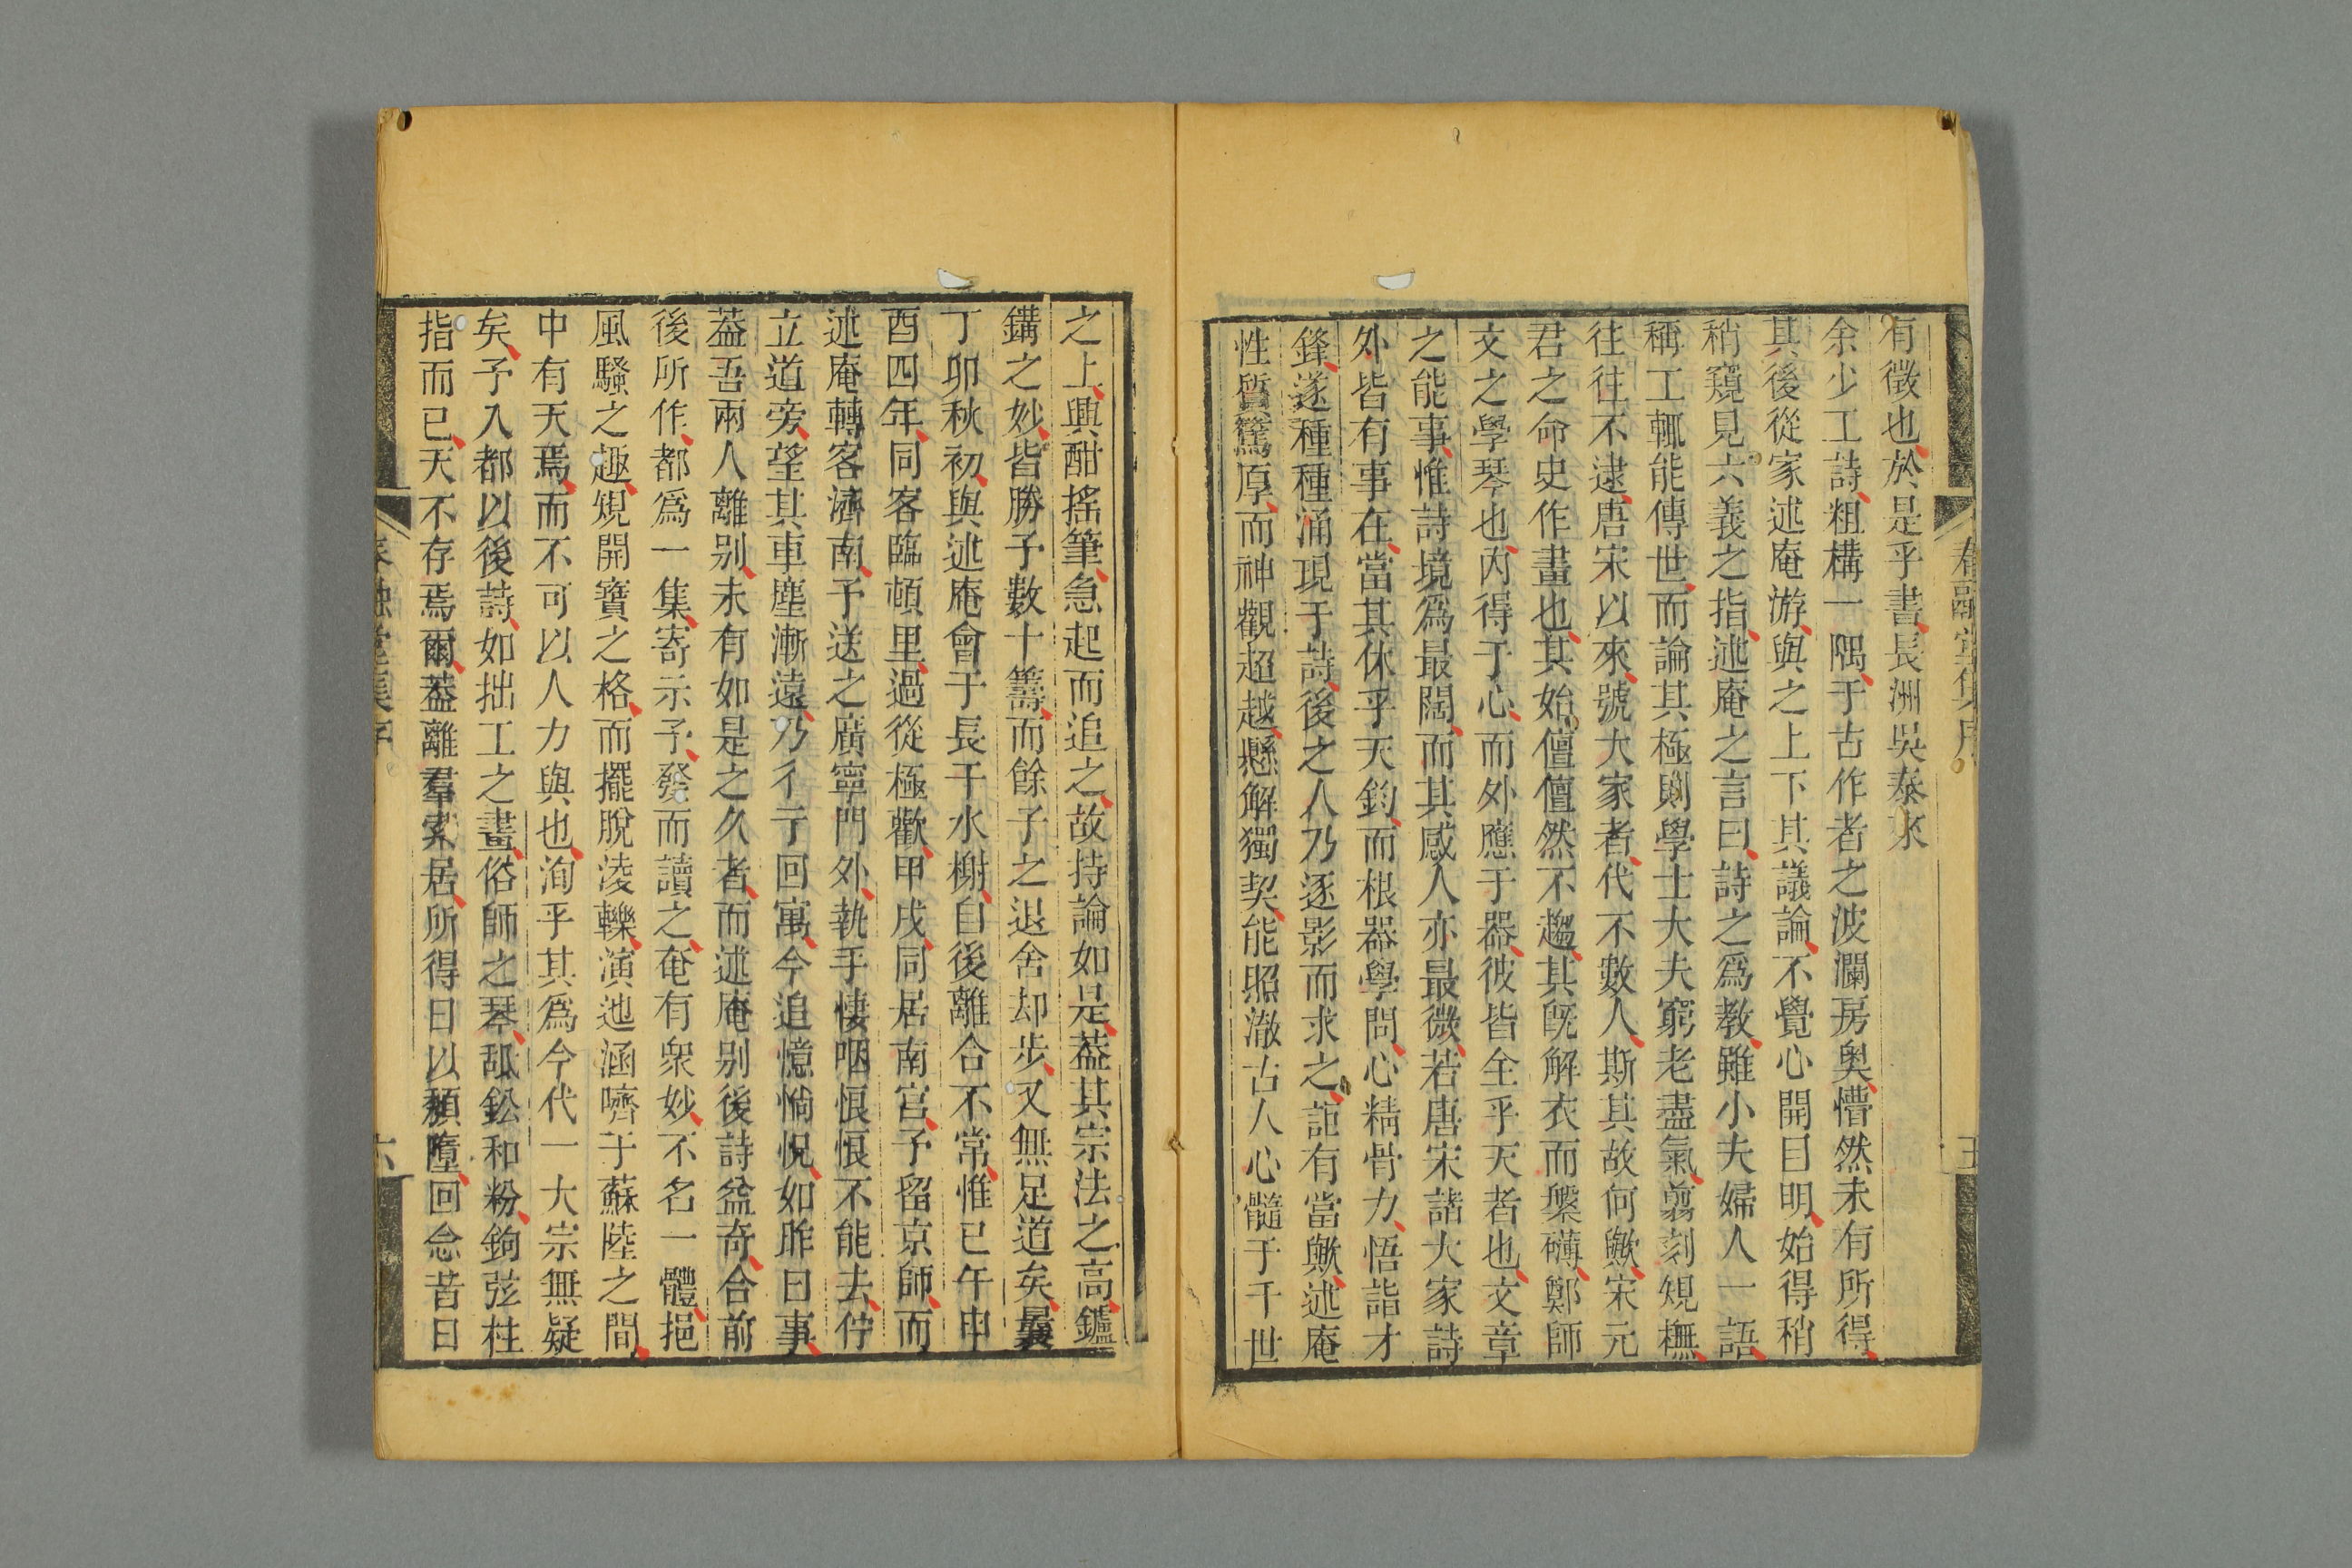 春融堂集序
五
有徵也於是乎書長洲吳泰來
余少工詩粗構一隅于古作者之波瀾房奧懵然未有所得
其後從家述庵游與之上下其議論不覺心開目明始得稍
稍窺見六義之指述庵之言曰詩之爲教雖小夫婦人一語
稱工輒能傳世而論其極則學士大夫窮老盡氣翦刻規橅
往往不逮唐宋以來號大家者代不數人斯其故何歟宋元
君之命史作畫也其始儃儃然不趨其旣解衣而槃礴鄭師
文之學琴也內得于心而外應于器彼皆全乎天者也文章
之能事惟詩境爲最闊而其感人亦最微若唐宋諸大家詩
外皆有事在當其休乎天鈞而根器學問心精骨力悟詣才
鋒遂種種涌現于詩後之人乃逐影而求之詎有當歟述庵
性質篤厚而神觀超越懸解獨契能照澈古人心髓于千世
之上興酣搖筆急起而追之故持論如是葢其宗法之高鑪
鞲之妙皆勝予數十籌而餘子之退舍却步又無足道矣曩
丁卯秋初與述庵會于長干水榭自後離合不常惟已午申
酉四年同客臨頓里過從極歡甲戌同居南宫予留京師而
述庵轉客濟南予送之廣寧門外執手悽咽恨恨不能去佇
立道旁望其車塵漸遠乃彳亍回寓今追憶惝怳如昨日事
葢吾兩人離别未有如是之久者而述庵别後詩益奇合前
後所作都爲一集寄示予發而讀之奄有衆妙不名一體挹
風騷之趣規開寶之格而擺脫淩轢演迤涵嚌于蘇陸之間
中有天焉而不可以人力與也洵乎其爲今代一大宗無疑
矣予入都以後詩如拙工之畫俗師之琴舐鉛和粉鉤弦柱
指而已天不存焉爾葢離羣索居所得日以頹墮回念昔日
春融堂集序
六